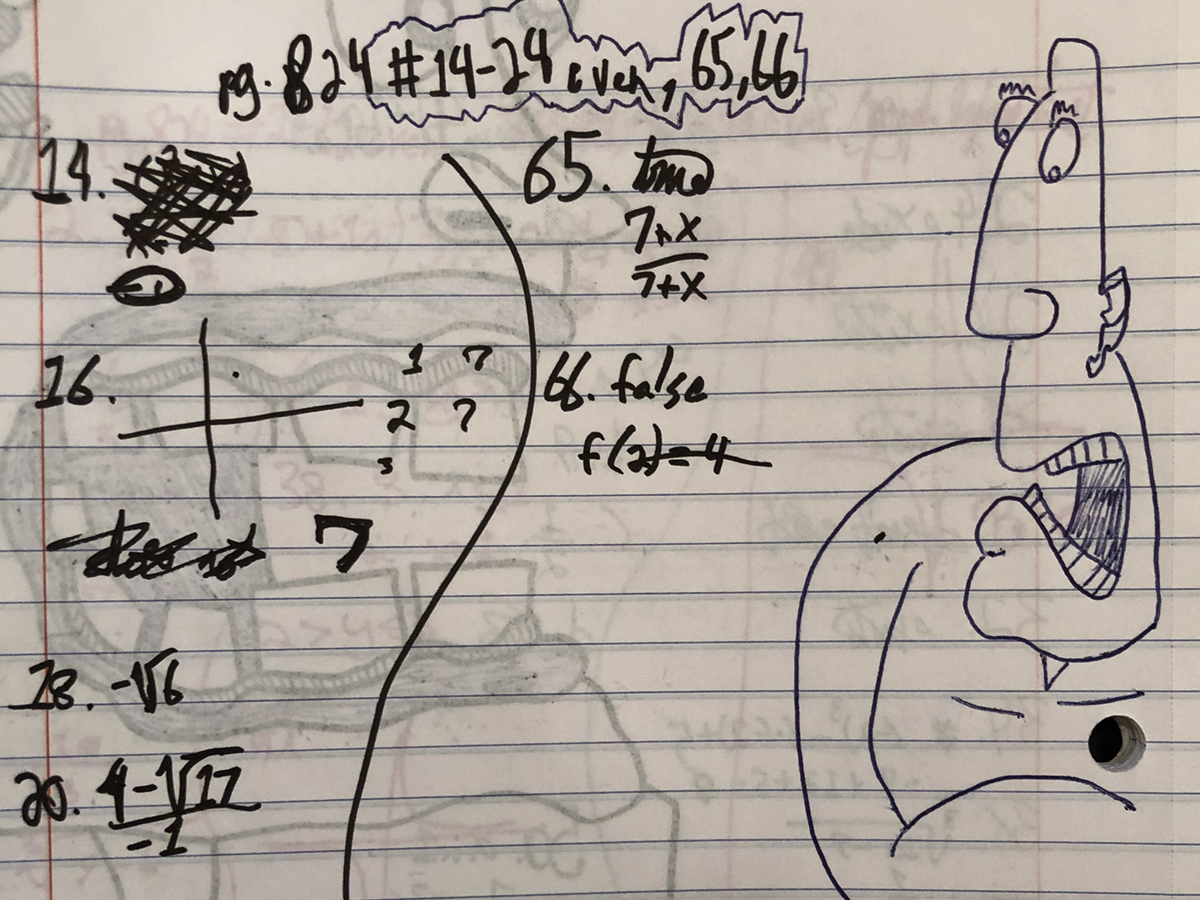 pg. 824 #14-24 even, 65,66
14.
-1
16.
1 7
2 7
3
7
18. -√6
20. 4-√17
-1
65.
7+x
7+x
66. false
f(2)=4